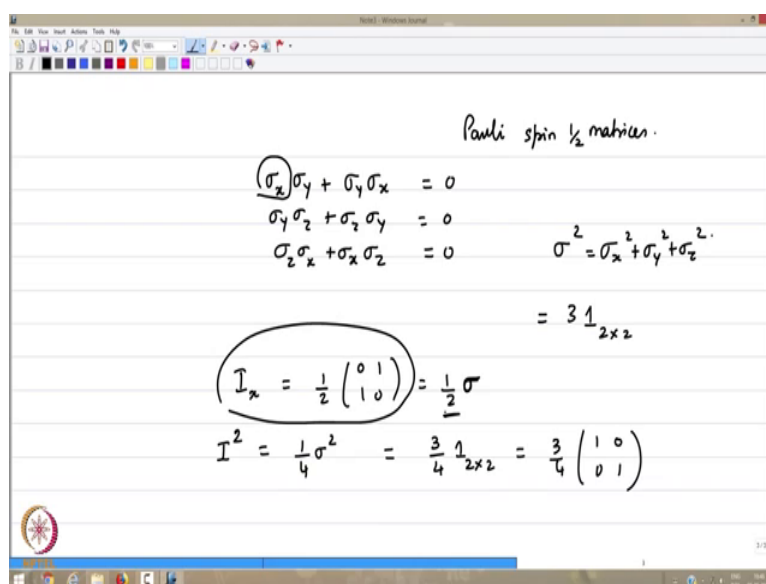 Note3 - Windows Journal
File Edit View Insert Actions Tools Help
Pauli spin 1/2 matrices.
σₓσᵧ + σᵧσₓ = 0
σᵧσ_z + σ_zσᵧ = 0
σ_zσₓ + σₓσ_z = 0
σ² = σₓ² + σᵧ² + σ_z².
= 3 1₂ₓ₂
Iₓ = 1/2 (0 1 / 1 0) = 1/2 σ
I² = 1/4 σ² = 3/4 1₂ₓ₂ = 3/4 (1 0 / 0 1)
NPTEL
3/3